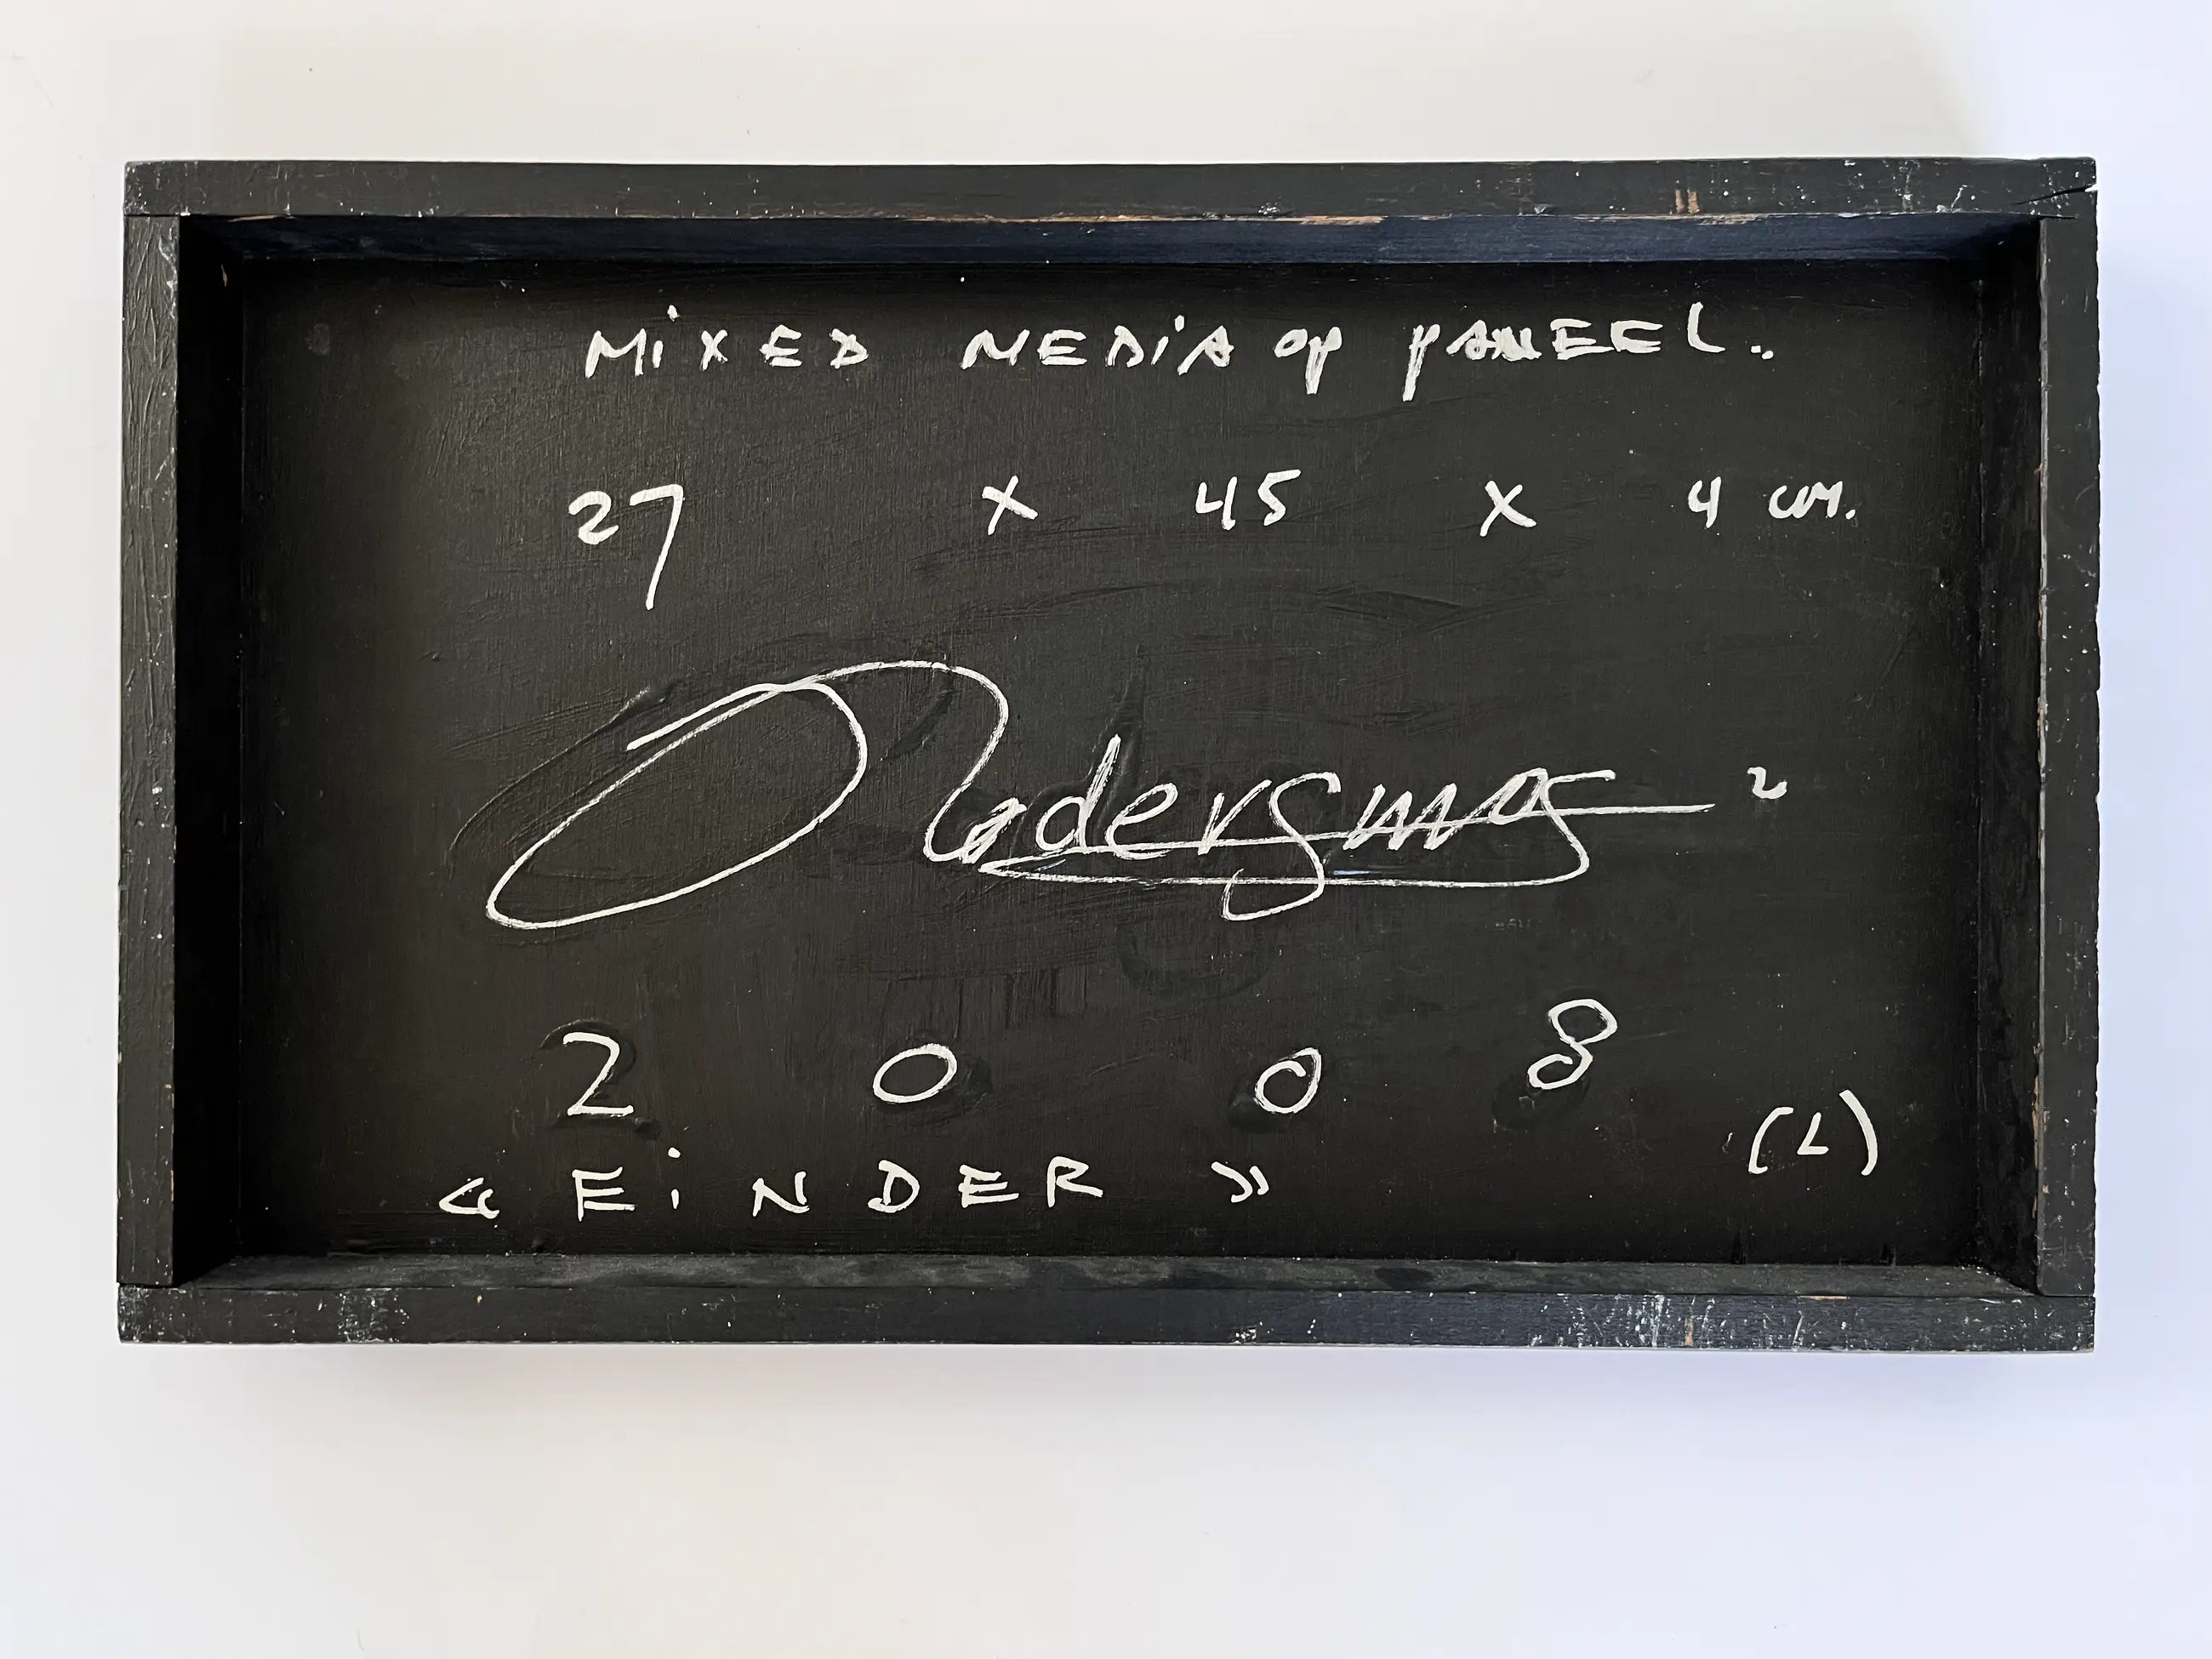 MiXED MEDiA op pANEEL..
27 x 45 x 4 cm.
2
2 0 0 8
(L)
« EiNDER »